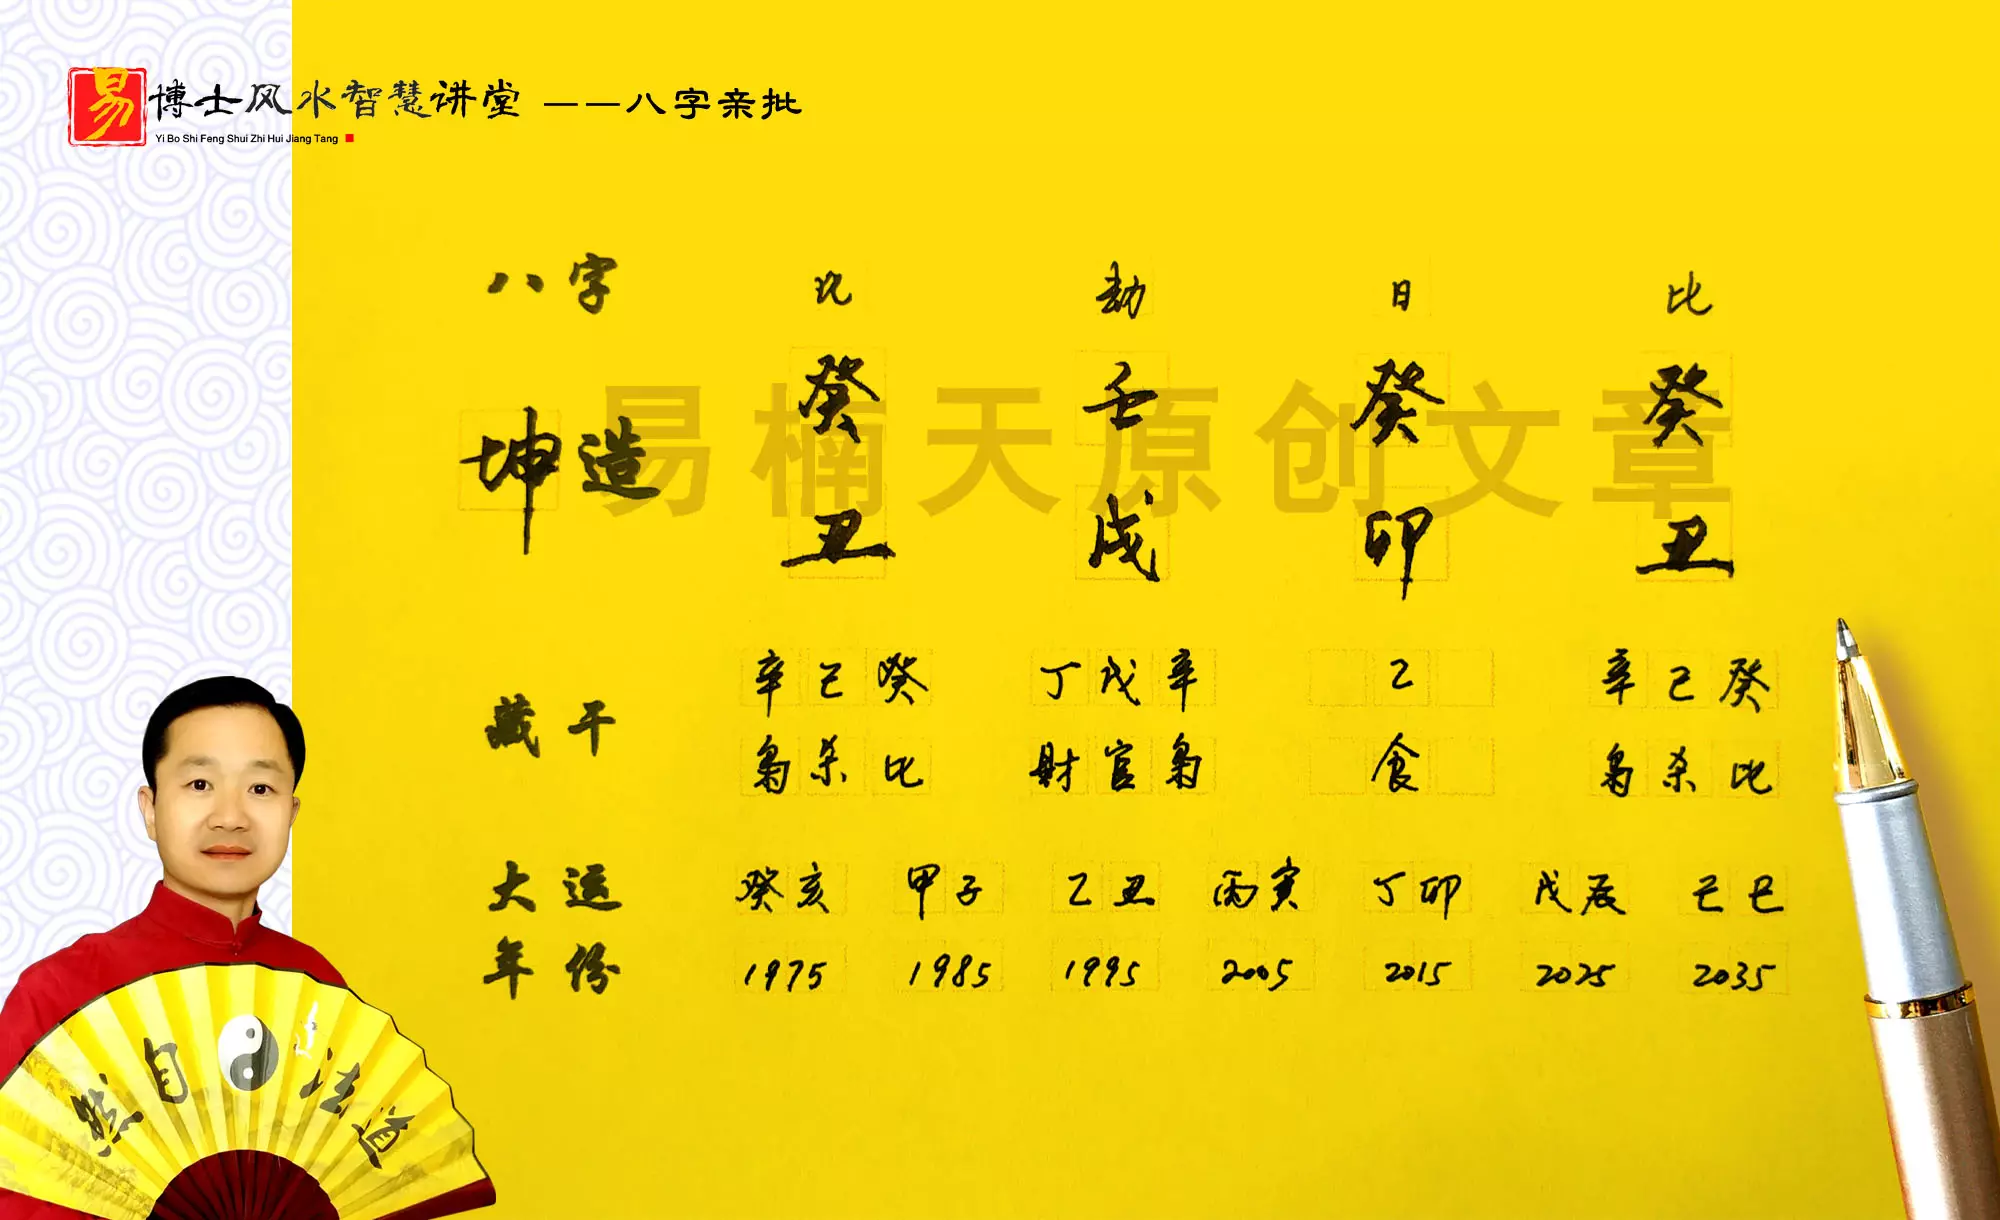 易博士风水智慧讲堂 ——八字亲批
Yi Bo Shi Feng Shui Zhi Hui Jiang Tang
八字 比 劫 日 比
坤造 癸 壬 癸 癸
丑 戌 卯 丑
易楠天原创文章
藏干 辛己癸 丁戊辛 乙 辛己癸
枭杀比 财官枭 食 枭杀比
大运 癸亥 甲子 乙丑 丙寅 丁卯 戊辰 己巳
年份 1975 1985 1995 2005 2015 2025 2035
道法自然